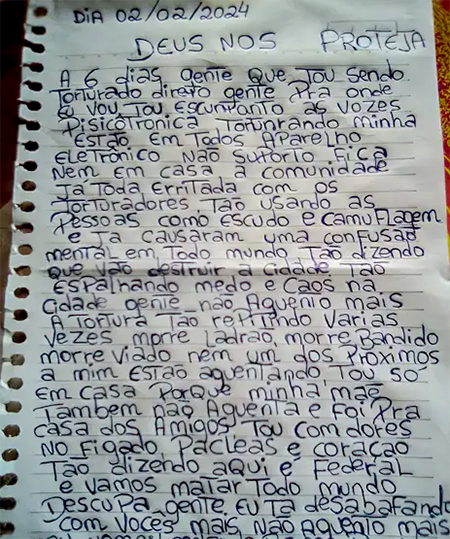 DiA 02/02/2024
DEUS NOS PROTEJA
A 6 dias gente Que Tou Sendo
Torturado direto gente Pra onde
eu vou Tou Escuntanto as vozes
Pisicotronica Torturando minha
Estão em Todos Aparelho
Eletronico Não Suporto Fica
Nem em casa A comunidade
Ja Toda Erritada com os
Torturadores Tão usando as
Pessoas como Escudo e camuFlagem
e Ja causaram uma conFusão
mental em Todo mundo Tão dizendo
que vão destruir a cidade Tão
Espalhando medo e Caos na
cidade gente não Aguenio mais
A Tortura Tão repitindo Varias
vezes morre Ladrão, morre Bandido
morre viado nem um dos Proximos
a mim Estão aguentando, Tou só
Em casa Porque minha mãe
Tambem não Aguenta e Foi Pra
casa dos Amigos Tou com dores
No Figado, Pacleas e coracao
Tão dizendo aqui e Federal
e vamos matar Todo mundo
Descupa gente Eu Ta desabafando
com voces mais Não Aguenio mais